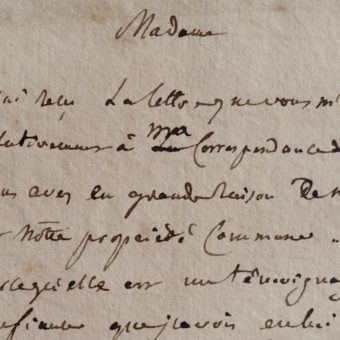 Madame
ai reçu La lettre que vous m'
lativement à ma Correspondance d
us avez eu grande raison De
r Notre propriété Commune
rcequ'elle est un témoignag
nfiance que j'avois en lui